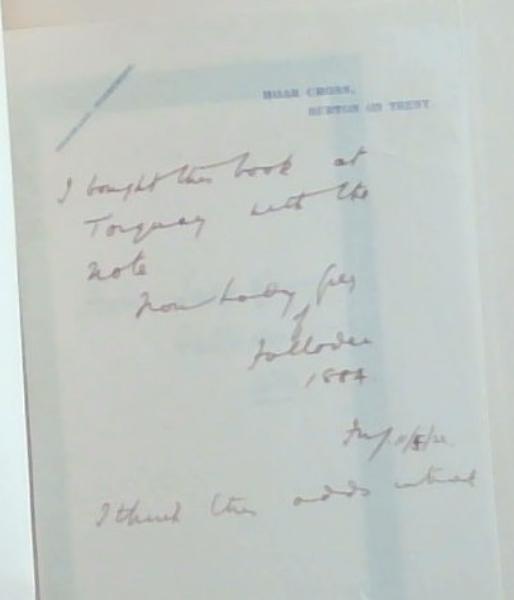 HOAR CROSS,
BURTON ON TRENT
I bought this book at
Torquay with the
note
from Lady Grey
of
Fallodon
1884
11/5/22
I think this adds interest